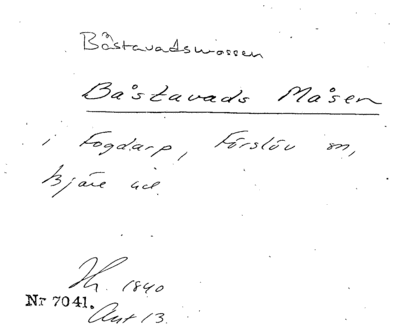 Båstavadsmossen
Båstavads Måsen
i Fogdarp, Förslöv sn,
Bjäre hd.
Th. 1840
Nr 7041.
Ant 13.